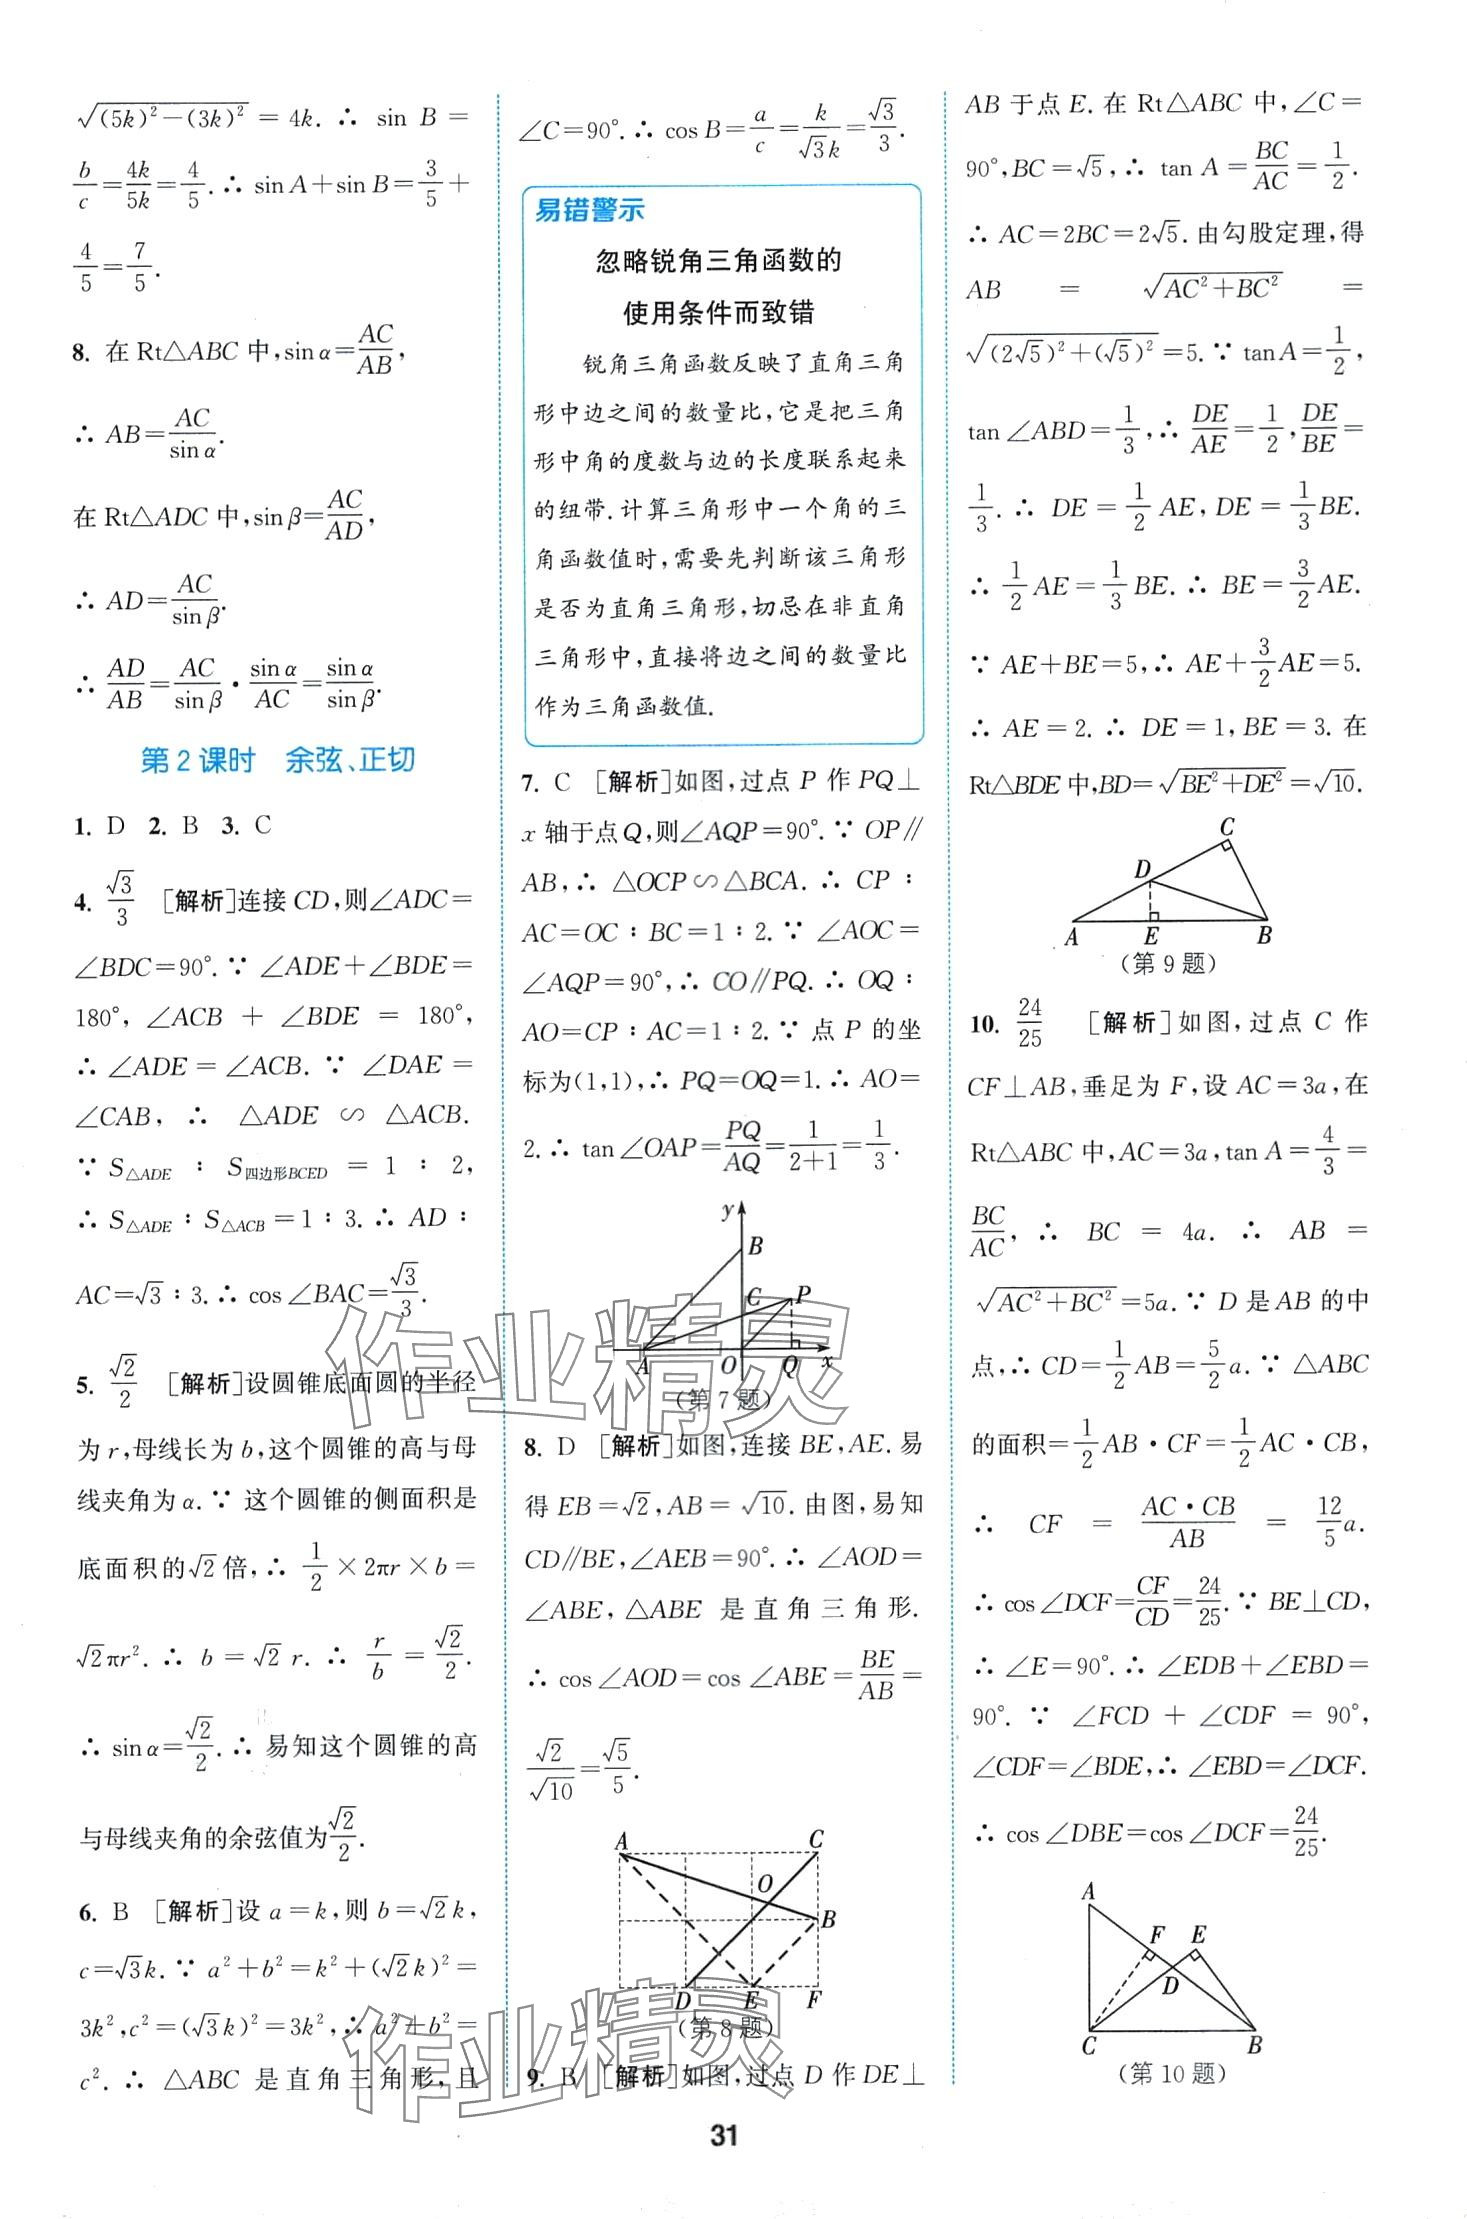 √((5k)²−(3k)²) = 4k. ∴ sin B =
b/c=4k/5k=4/5. ∴ sin A+sin B=3/5+
4/5=7/5.
8. 在 Rt△ABC 中,sin α=AC/AB,
∴ AB=AC/sin α.
在 Rt△ADC 中,sin β=AC/AD,
∴ AD=AC/sin β.
∴ AD/AB=AC/sin β · sin α/AC=sin α/sin β.
第 2 课时 余弦、正切
1. D 2. B 3. C
4. √3/3 [解析]连接 CD,则∠ADC=
∠BDC=90°. ∵ ∠ADE+∠BDE=
180°, ∠ACB + ∠BDE = 180°,
∴ ∠ADE = ∠ACB. ∵ ∠DAE =
∠CAB, ∴ △ADE ∽ △ACB.
∵ S△ADE : S四边形BCED = 1 : 2,
∴ S△ADE : S△ACB = 1 : 3. ∴ AD :
AC=√3 : 3. ∴ cos∠BAC=√3/3.
5. √2/2 [解析]设圆锥底面圆的半径
为 r,母线长为 b,这个圆锥的高与母
线夹角为 α. ∵ 这个圆锥的侧面积是
底面积的√2倍,∴ 1/2 × 2πr × b =
√2πr². ∴ b = √2 r. ∴ r/b = √2/2.
∴ sin α=√2/2. ∴ 易知这个圆锥的高
与母线夹角的余弦值为√2/2.
6. B [解析]设 a=k,则 b=√2k,
c=√3k. ∵ a²+b²=k²+(√2k)²=
3k²,c²=(√3k)²=3k²,∴ a²+b²=
c². ∴ △ABC 是直角三角形,且
∠C=90°. ∴ cos B=a/c=k/√3k=√3/3.
易错警示
忽略锐角三角函数的
使用条件而致错
锐角三角函数反映了直角三角
形中边之间的数量比,它是把三角
形中角的度数与边的长度联系起来
的纽带.计算三角形中一个角的三
角函数值时,需要先判断该三角形
是否为直角三角形,切忌在非直角
三角形中,直接将边之间的数量比
作为三角函数值.
7. C [解析]如图,过点 P 作 PQ⊥
x 轴于点 Q,则∠AQP=90°. ∵ OP∥
AB,∴ △OCP∽△BCA. ∴ CP :
AC=OC : BC=1 : 2. ∵ ∠AOC=
∠AQP=90°,∴ CO∥PQ. ∴ OQ :
AO=CP : AC=1 : 2. ∵ 点 P 的坐
标为(1,1),∴ PQ=OQ=1. ∴ AO=
2. ∴ tan∠OAP=PQ/AQ=1/(2+1)=1/3.
y
B
C
P
A
O
Q
x
(第 7 题)
8. D [解析]如图,连接 BE,AE. 易
得 EB=√2,AB=√10. 由图,易知
CD∥BE,∠AEB=90°. ∴ ∠AOD=
∠ABE,△ABE 是直角三角形.
∴ cos∠AOD=cos∠ABE=BE/AB=
√2/√10=√5/5.
A
C
O
B
D
E
F
(第 8 题)
9. B [解析]如图,过点 D 作 DE⊥
AB 于点 E. 在 Rt△ABC 中,∠C=
90°,BC=√5,∴ tan A=BC/AC=1/2.
∴ AC=2BC=2√5. 由勾股定理,得
AB = √(AC²+BC²) =
√((2√5)²+(√5)²)=5. ∵ tan A=1/2,
tan∠ABD=1/3,∴ DE/AE=1/2,DE/BE=
1/3. ∴ DE=1/2 AE,DE=1/3 BE.
∴ 1/2 AE=1/3 BE. ∴ BE=3/2 AE.
∵ AE+BE=5,∴ AE+3/2 AE=5.
∴ AE=2. ∴ DE=1,BE=3. 在
Rt△BDE 中,BD=√(BE²+DE²)=√10.
C
D
A
E
B
(第 9 题)
10. 24/25 [解析]如图,过点 C 作
CF⊥AB,垂足为 F,设 AC=3a,在
Rt△ABC 中,AC=3a,tan A=4/3=
BC/AC, ∴ BC = 4a. ∴ AB =
√(AC²+BC²)=5a. ∵ D 是 AB 的中
点,∴ CD=1/2 AB=5/2 a. ∵ △ABC
的面积=1/2 AB·CF=1/2 AC·CB,
∴ CF = AC·CB/AB = 12/5 a.
∴ cos∠DCF=CF/CD=24/25. ∵ BE⊥CD,
∴ ∠E=90°. ∴ ∠EDB+∠EBD=
90°. ∵ ∠FCD + ∠CDF = 90°,
∠CDF=∠BDE,∴ ∠EBD=∠DCF.
∴ cos∠DBE=cos∠DCF=24/25.
A
F
E
D
C
B
(第 10 题)
作业精灵
作业精灵
31